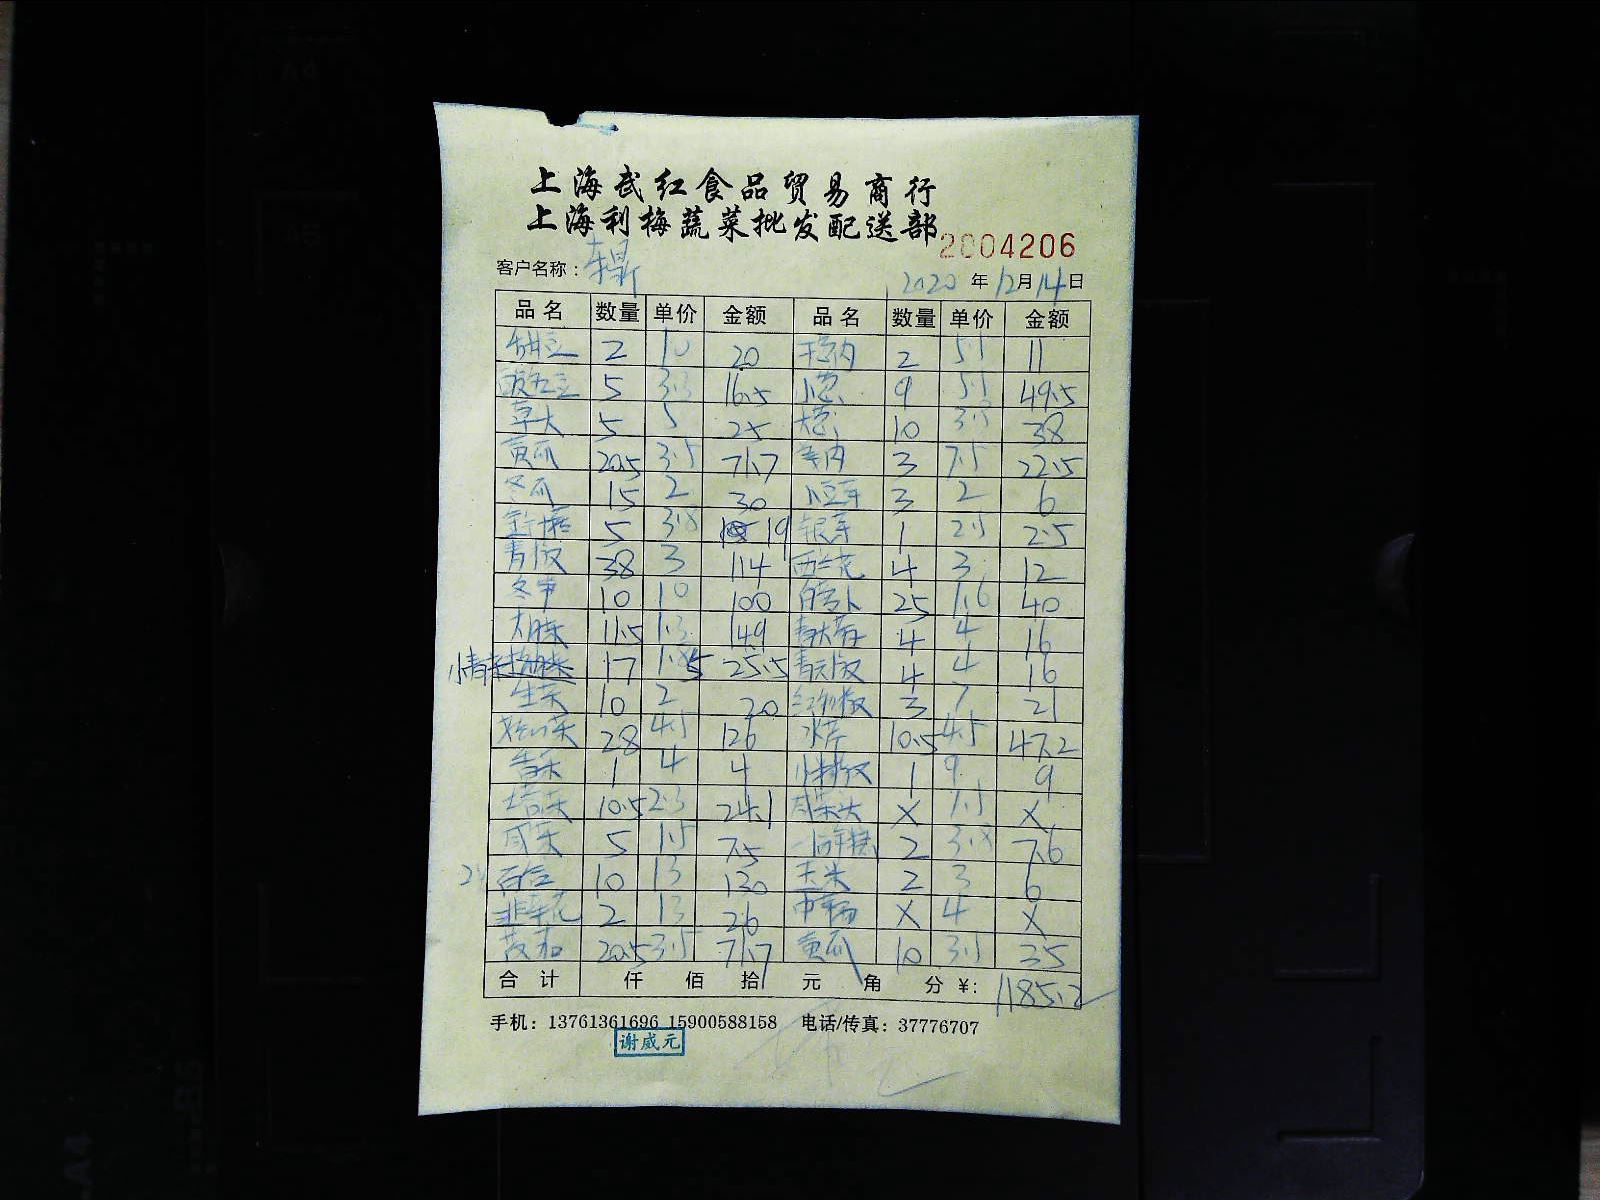 上海武红食品贸易商行
上海利梅蔬菜批发配送部
2004206
客户名称： 2020年12月14日
品名 数量 单价 金额 品名 数量 单价 金额
2 10 20 2 5.5 11
5 3.3 16.5 小葱 9 5.5 49.5
草头 5 5 25 大葱 10 3.8 38
黄瓜 20.5 3.5 71.7 3 7.5 22.5
冬瓜 15 2 30 小豆芽 3 2 6
5 3.8 19 银芽 1 2.5 2.5
青椒 38 3 114 西兰花 4 3 12
冬笋 10 10 100 白萝卜 25 1.6 40
大白菜 11.5 1.3 14.9 4 4 16
小青菜 17 1.5 25.5 4 4 16
生菜 10 2 20 3 7 21
28 4.5 126 水芹 10.5 4.5 47.2
香菜 1 4 4 小米椒 1 9 9
塔菜 10.5 2.3 24.1 X X
咸菜 5 1.5 7.5 年糕 2 3.8 7.6
百合 10 13 130 玉米 2 3 6
韭菜花 2 13 26 X 4 X
20.5 3.5 71.7 黄瓜 10 3.5 35
合计 仟 佰 拾 元 角 分 ￥: 1185.2
手机：13761361696 15900588158 电话/传真：37776707
谢威元